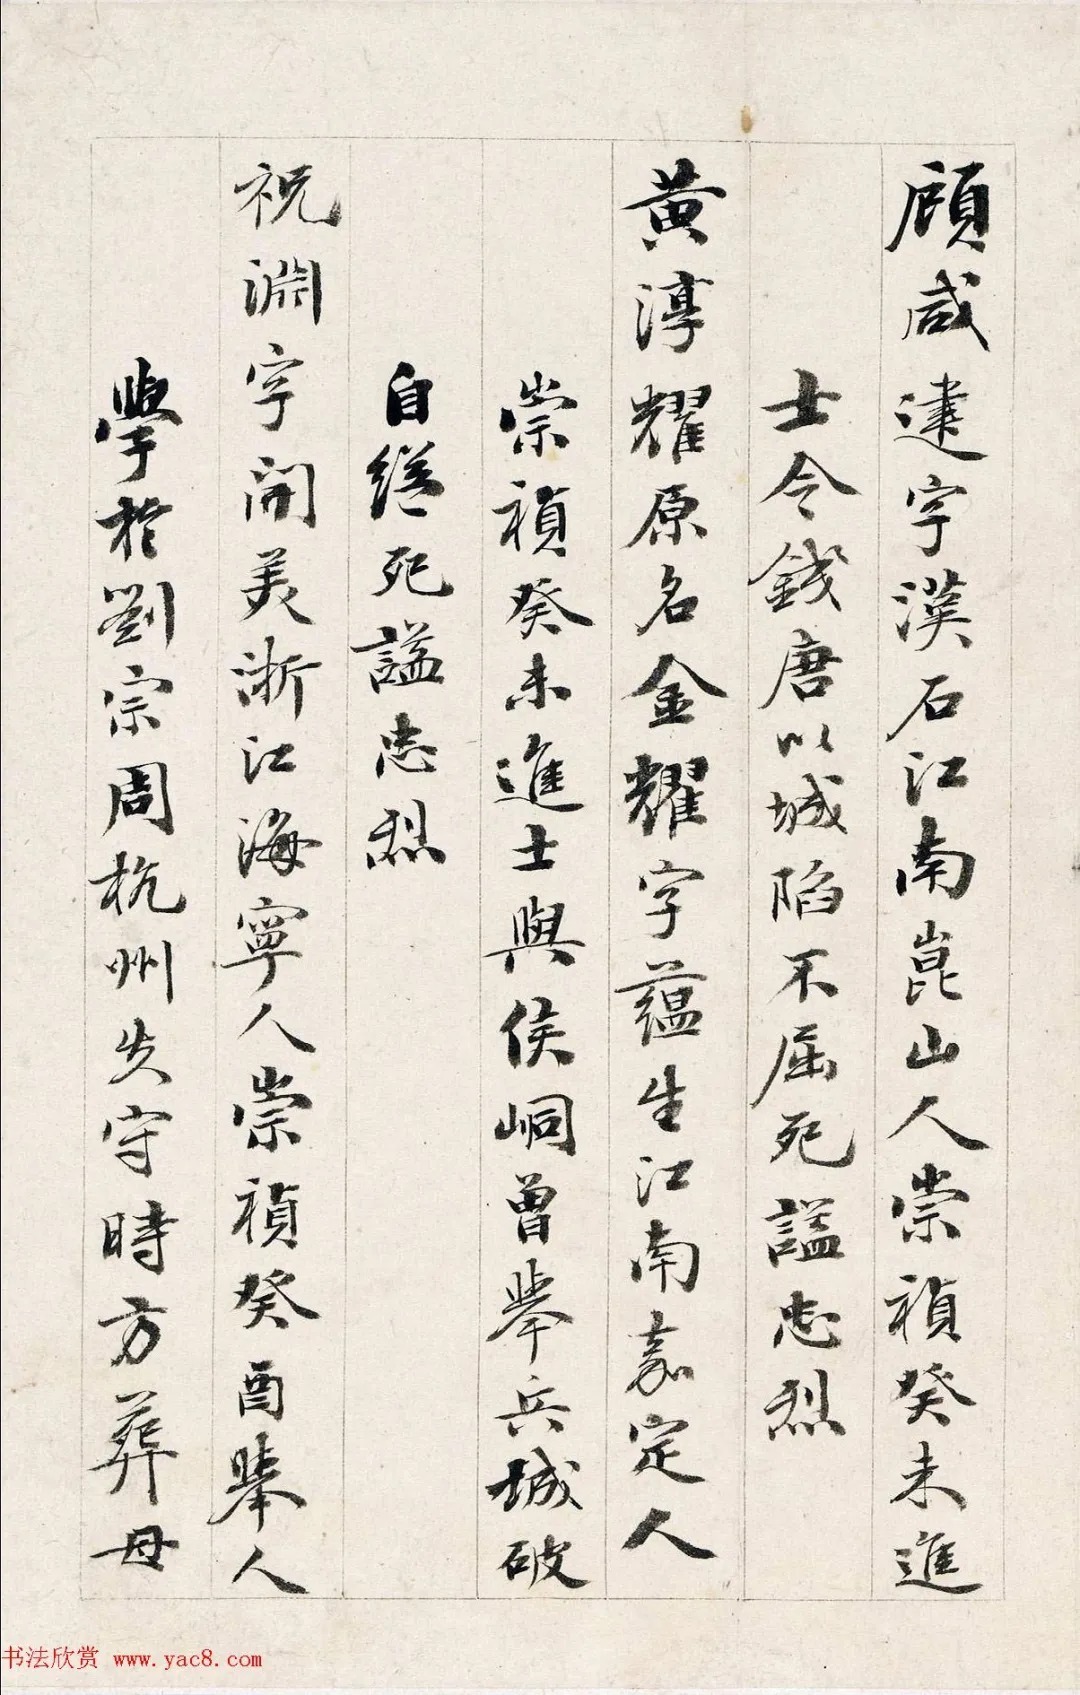 顧咸建字漢石江南崑山人崇禎癸未進
士令錢唐以城陷不屈死謚忠烈
黃淳耀原名金耀字蘊生江南嘉定人
崇禎癸未進士與侯峒曾舉兵城破
自縊死謚忠烈
祝淵字開美浙江海寧人崇禎癸酉舉人
學於劉宗周杭州失守時方葬母
书法欣赏 www.yac8.com